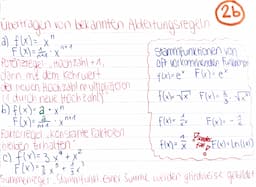 Übertragen von bekannten Ableitungsregeln
2b
a) f(x) = xⁿ
F(x) = 1/(n+1) · xⁿ⁺¹
Potenzregel: „Hochzahl +1,
dann mit dem Kehrwert
der neuen Hochzahl multiplizieren
(: durch neue Hochzahl)"
b) f(x) = a · xⁿ
F(x) = a/(n+1) · xⁿ⁺¹
Faktorregel: „konstante Faktoren
bleiben erhalten"
c) f(x) = 3x⁴ + x²
Summenregel: Stammfunkt. einer Summe werden gliedweise gebildet
Stammfunktionen von
oft vorkommenden Funktionen
f(x) = eˣ F(x) = eˣ
f(x) = √x F(x) =
F(x) = ln(x)